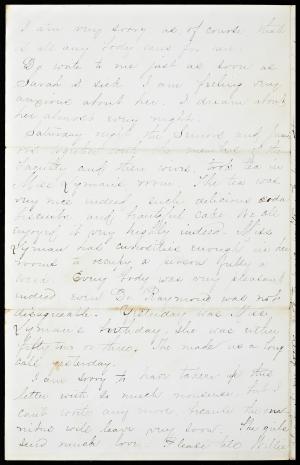 I am very sorry as of course that
is all any body cares for me.
Do write to me just as soon as
Sarah is sick I am feeling very
anxious about her. I dream about
her almost every night.
Saturday night the Seniors and
with the members of the
Faculty and their wives, took tea in
Miss Lyman's room. The tea was
very nice indeed, such delicious soda
biscuits and beautiful cake. We all
enjoyed it very highly indeed. Miss
Lyman has curiosities enough in her
rooms to occupy a person fully a
week. Every body was very pleasant
indeed even Dr Raymond was not
disagreeable. Yesterday was Miss
Lyman's birthday, she was either
fifty two or three. She made us a long
call yesterday.
I am sorry to have taken up this
letter with so much nonsense, but I
can't write any more, because the
will leave very soon. The girls
send much love. Please tell Willie